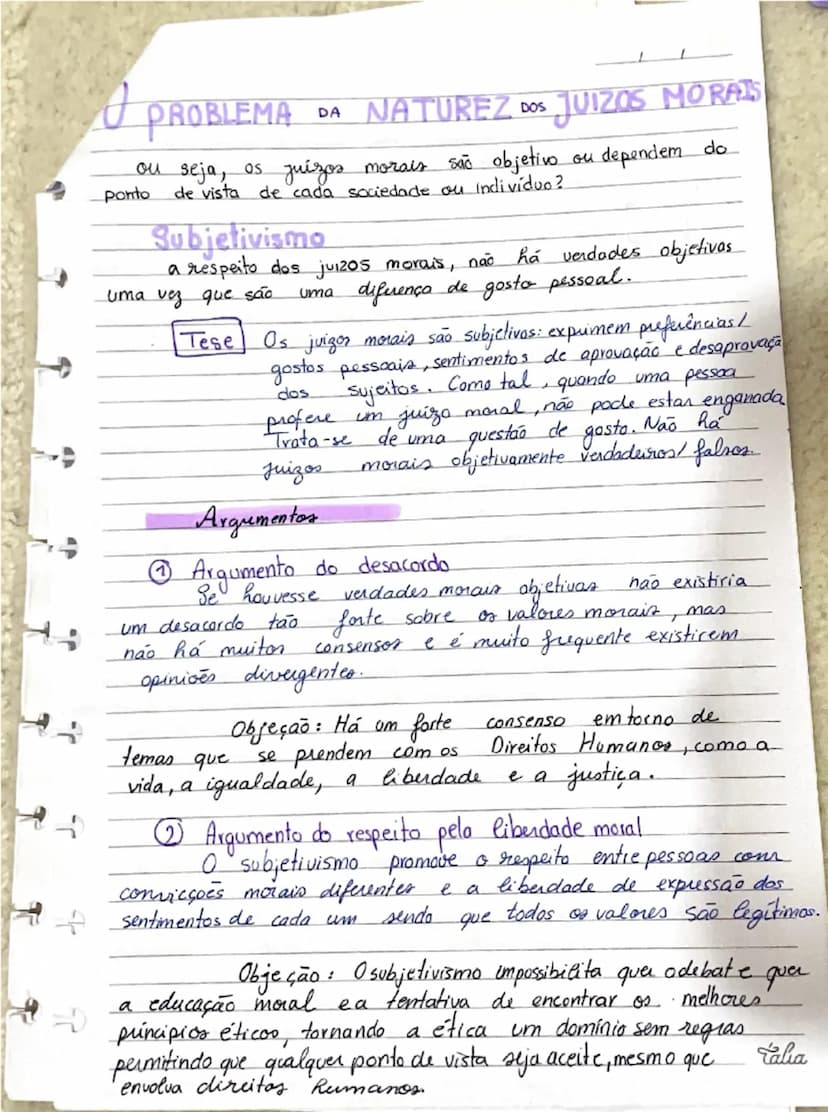 O PROBLEMA DA NATUREZ DOS JUIZOS MORAIS
ou seja, os juízos morais são objetivo ou dependem do
ponto de vista de cada sociedade ou indivíduo?
Subjetivismo
a respeito dos juizos morais, não há verdades objetivas
uma vez que são uma diferença de gosto pessoal.
Tese Os juizos morais são subjetivos: exprimem preferências/
gostos pessoais, sentimentos de aprovação e desaprovaçã
dos sujeitos. Como tal, quando uma pessoa
profere um juízo moral, não pode estar enganada
Trata-se de uma questão de gosto. Não há
juizos morais objetivamente verdadeiros/ falsos.
Argumentos
① Argumento do desacordo
Se houvesse verdades morais objetivas não existiria
um desacordo tão forte sobre os valores morais, mas
não há muitos consensos e é muito frequente existirem
opiniões divergentes.
Objeção: Há um forte consenso em torno de
temas que se prendem com os Direitos Humanos, como a
vida, a igualdade, a liberdade e a justiça.
② Argumento do respeito pela liberdade moral
O subjetivismo promove o respeito entre pessoas com
convicções morais diferentes e a liberdade de expressão dos
sentimentos de cada um sendo que todos os valores são legítimos.
Objeção: O subjetivismo impossibilita quer o debate quer
a educação moral e a tentativa de encontrar os melhores
princípios éticos, tornando a ética um domínio sem regras
permitindo que qualquer ponto de vista seja aceite, mesmo que
envolva direitos humanos.
Tália